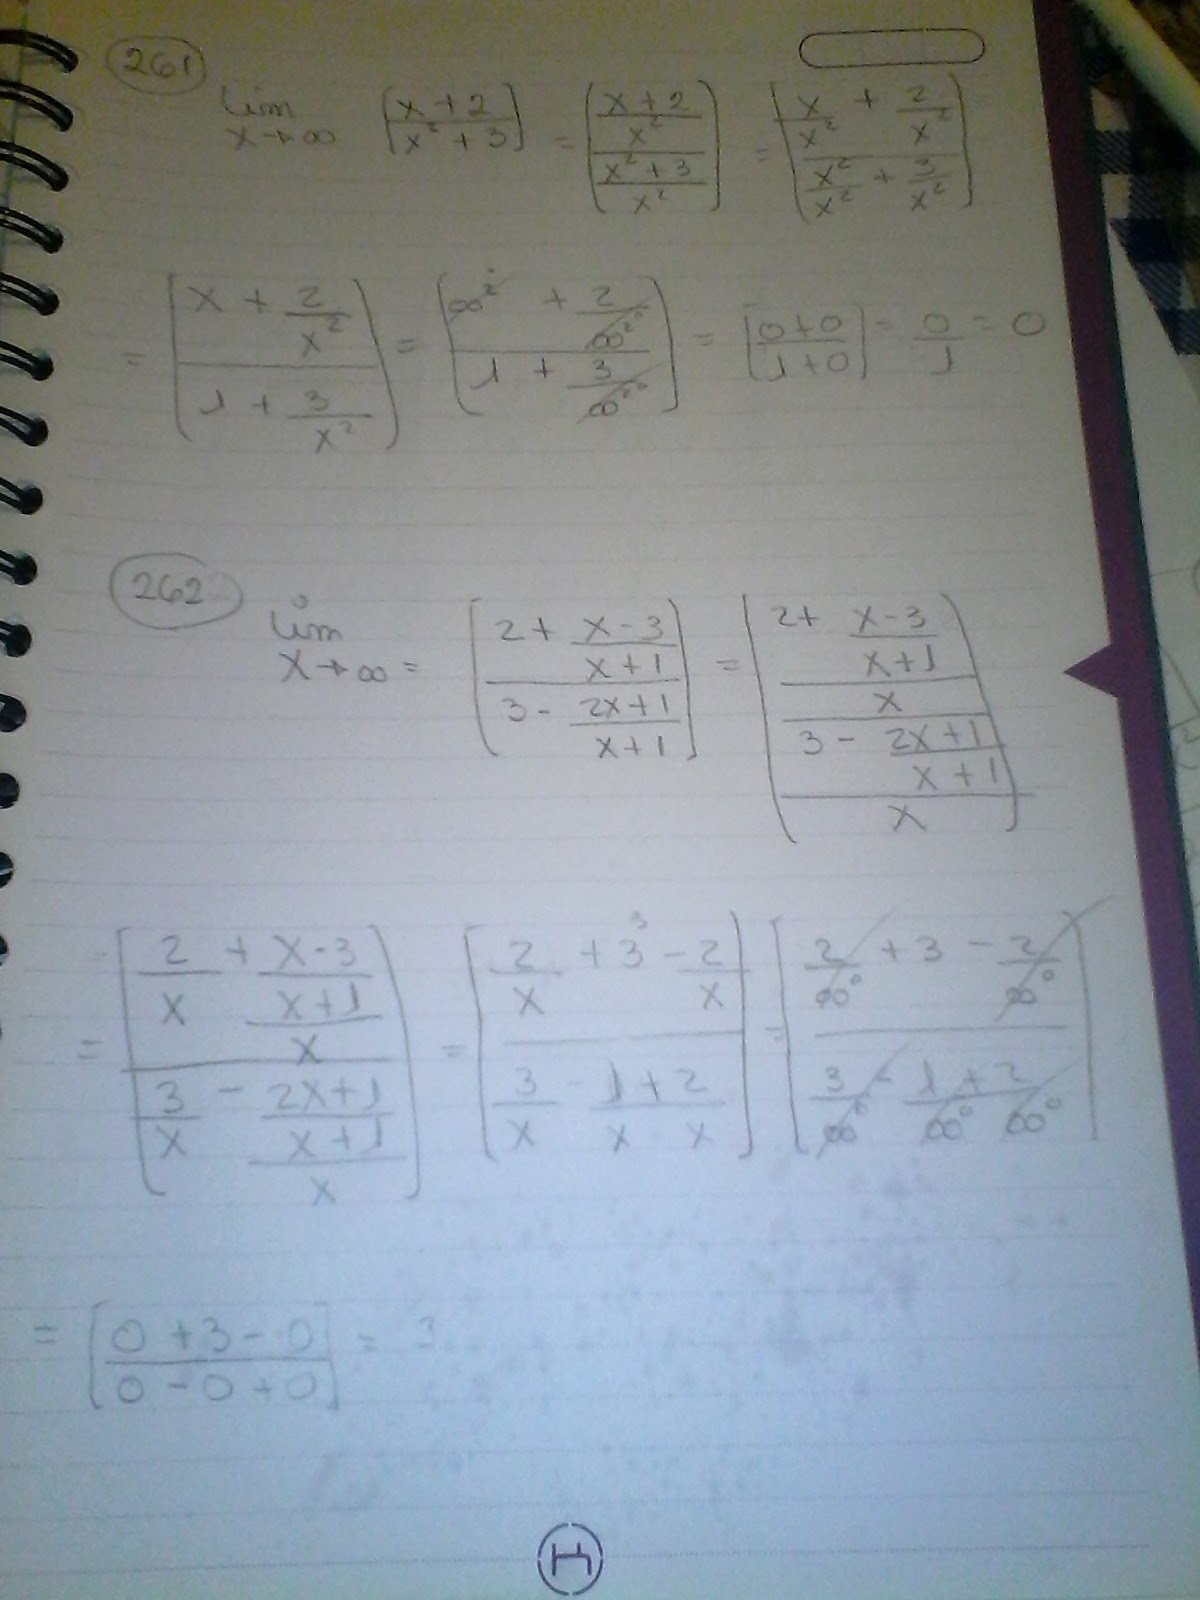 261
lim x→∞ [(x+2)/(x²+3)] = [((x+2)/x²)/((x²+3)/x²)] = [(x/x² + 2/x²)/(x²/x² + 3/x²)]
= [(x + 2/x²)/(1 + 3/x²)] = [(∞² + 2/∞²⁰)/(1 + 3/∞²⁰)] = [(0+0)/(1+0)] = 0/1 = 0
262
lim x→∞ = [(2 + (x-3)/(x+1))/(3 - (2x+1)/(x+1))] = [((2 + (x-3)/(x+1))/x)/((3 - (2x+1)/(x+1))/x)]
= [(2/x + (x-3)/((x+1)/x))/(3/x - (2x+1)/((x+1)/x))] = [(2/x + 3 - 2/x)/(3/x - 1/x + 2/x)] = [(2/∞⁰ + 3 - 2/∞⁰)/(3/∞⁰ - 1/∞⁰ + 2/∞⁰)]
= [(0+3-0)/(0-0+0)] = 3